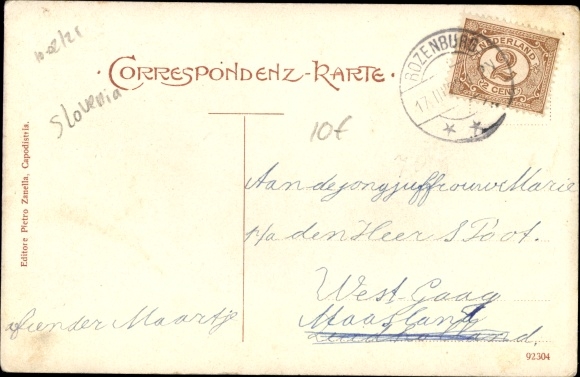 Slovenia
CORRESPONDENZ-KARTE.
10€
ROZENBURG
NEDERLAND
2
(2 CENT)
Editore Pietro Zanella, Capodistria.
Aan de jongjuffrouw Marie
p/a den Heer S Poot.
West-Gaag
Maasland
Zuid Holland.
afzender Maartje
92304